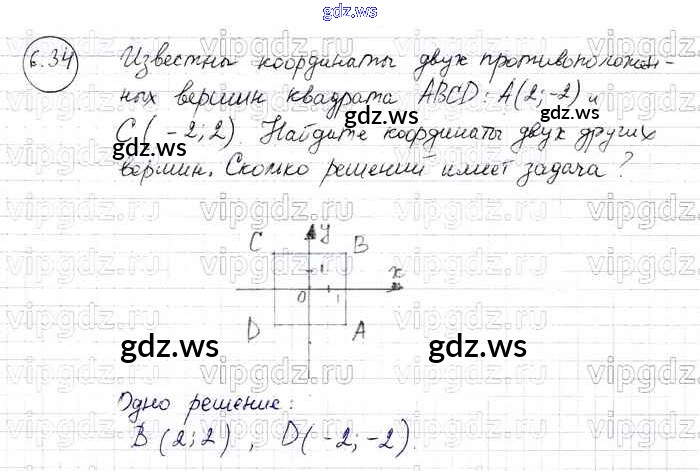 gdz.ws
6.34
Известны координаты двух противополож-
ных вершин квадрата ABCD: A(2;-2) и
C(-2;2). Найдите координаты двух других
вершин. Сколько решений имеет задача?
vipgdz.ru vipgdz.ru vipgdz.ru vipgdz.ru
gdz.ws gdz.ws
y
C B
1 x
0 1
D A
gdz.ws gdz.ws
Одно решение:
B(2;2), D(-2;-2).
gdz.ws